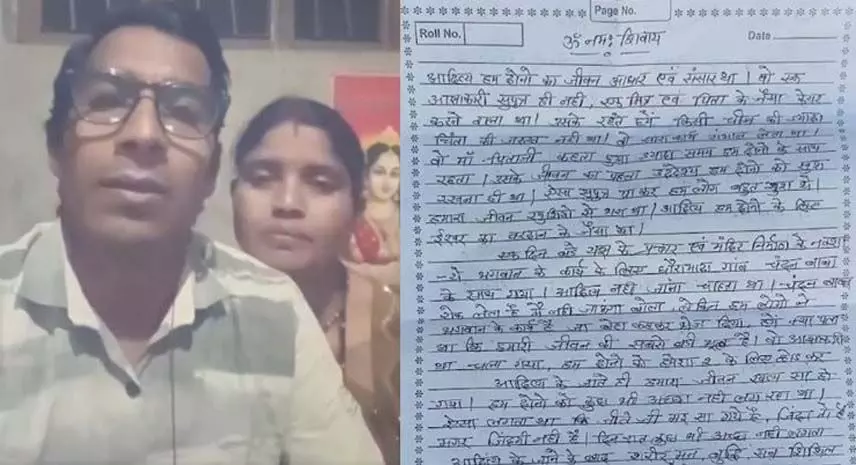 Page No.
Roll No.
ॐ नमः शिवाय
Date
आदित्य हम दोनो का जीवन आधार एवं संसार था। वो एक
आज्ञाकारी सुपुत्र ही नहीं, एक मित्र एवं पिता के जैसा केयर
करने वाला था। उसके रहते हमें किसी चीज की ज्यादा
चिंता की जरूरत नहीं था। वो सारा कार्य संभाल लेता था।
वो माँ - पिताजी कहता हुआ ज्यादा समय हम दोनो के साथ
रहता। उसके जीवन का पहला उद्देश्य हम दोनो को खुश
रखना ही था। ऐसा सुपुत्र पा कर हम लोग बहुत खुश थे।
हमारा जीवन खुशियों से भरा था। आदित्य हम दोनो के लिए
ईश्वर का वरदान के जैसा था।
एक दिन बड़े यज्ञ के प्रचार एवं मंदिर निर्माण के नक्शा
- से भगवान के कार्य के लिए गांव चंदन बाबा
के साथ गया। आदित्य नहीं जाना चाहता था। चंदन बाबा
रोक लेते हैं मैं नहीं जाउंगा बोला, लेकिन हम लोगो ने
भगवान के कार्य है जा बेटा कहकर भेज दिया, हमें क्या पता
था कि हमारी जीवन की सबसे बड़ी भूल है। वो आज्ञाकारी
था चला गया, हम दोनो को हमेशा 2 के लिए छोड़ कर
आदित्य के जाते ही हमारा जीवन खत्म सा हो
गया। हम दोनो को कुछ भी अच्छा नहीं लग रहा था।
ऐसा लगता था कि जीते जी मर सा गये है, जिंदा तो हैं
मगर जिंदगी नहीं है। दिन रात कुछ भी अच्छा नहीं लगता
आदित्य के जाने के बाद शरीर, मन, बुद्धि, सब शिथिल